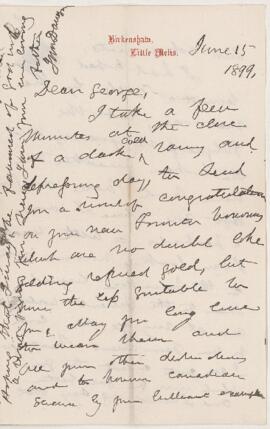 Birkenshaw,
Little Metis.
June 15
1899,
Dear George,
I take a few
minutes at the close
of a dark cold rainy and
depressing day, to send
you a word of congratulation
on your new Toronto honour
which are no doubt like
gilding refined gold, but
none the less suitable to
you & May you long live
to wear them and
all your other distinctions
and to honour Canadian
Science by your brilliant example
Hoping that
the of good with
your ever loving
Father